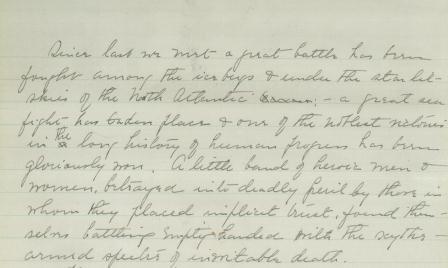 Since last we met a great battle has been
fought among the icebergs & under the star lit
skies of the North Atlantic ; – a great sea
fight has taken place & one of the noblest victories
in the long history of human progress has been
gloriously won. A little band of heroic men &
women, betrayed into deadly peril by those in
whom they placed implicit trust, found them-
selves battling empty-handed with the scythe-
armed spectre of inevitable death.